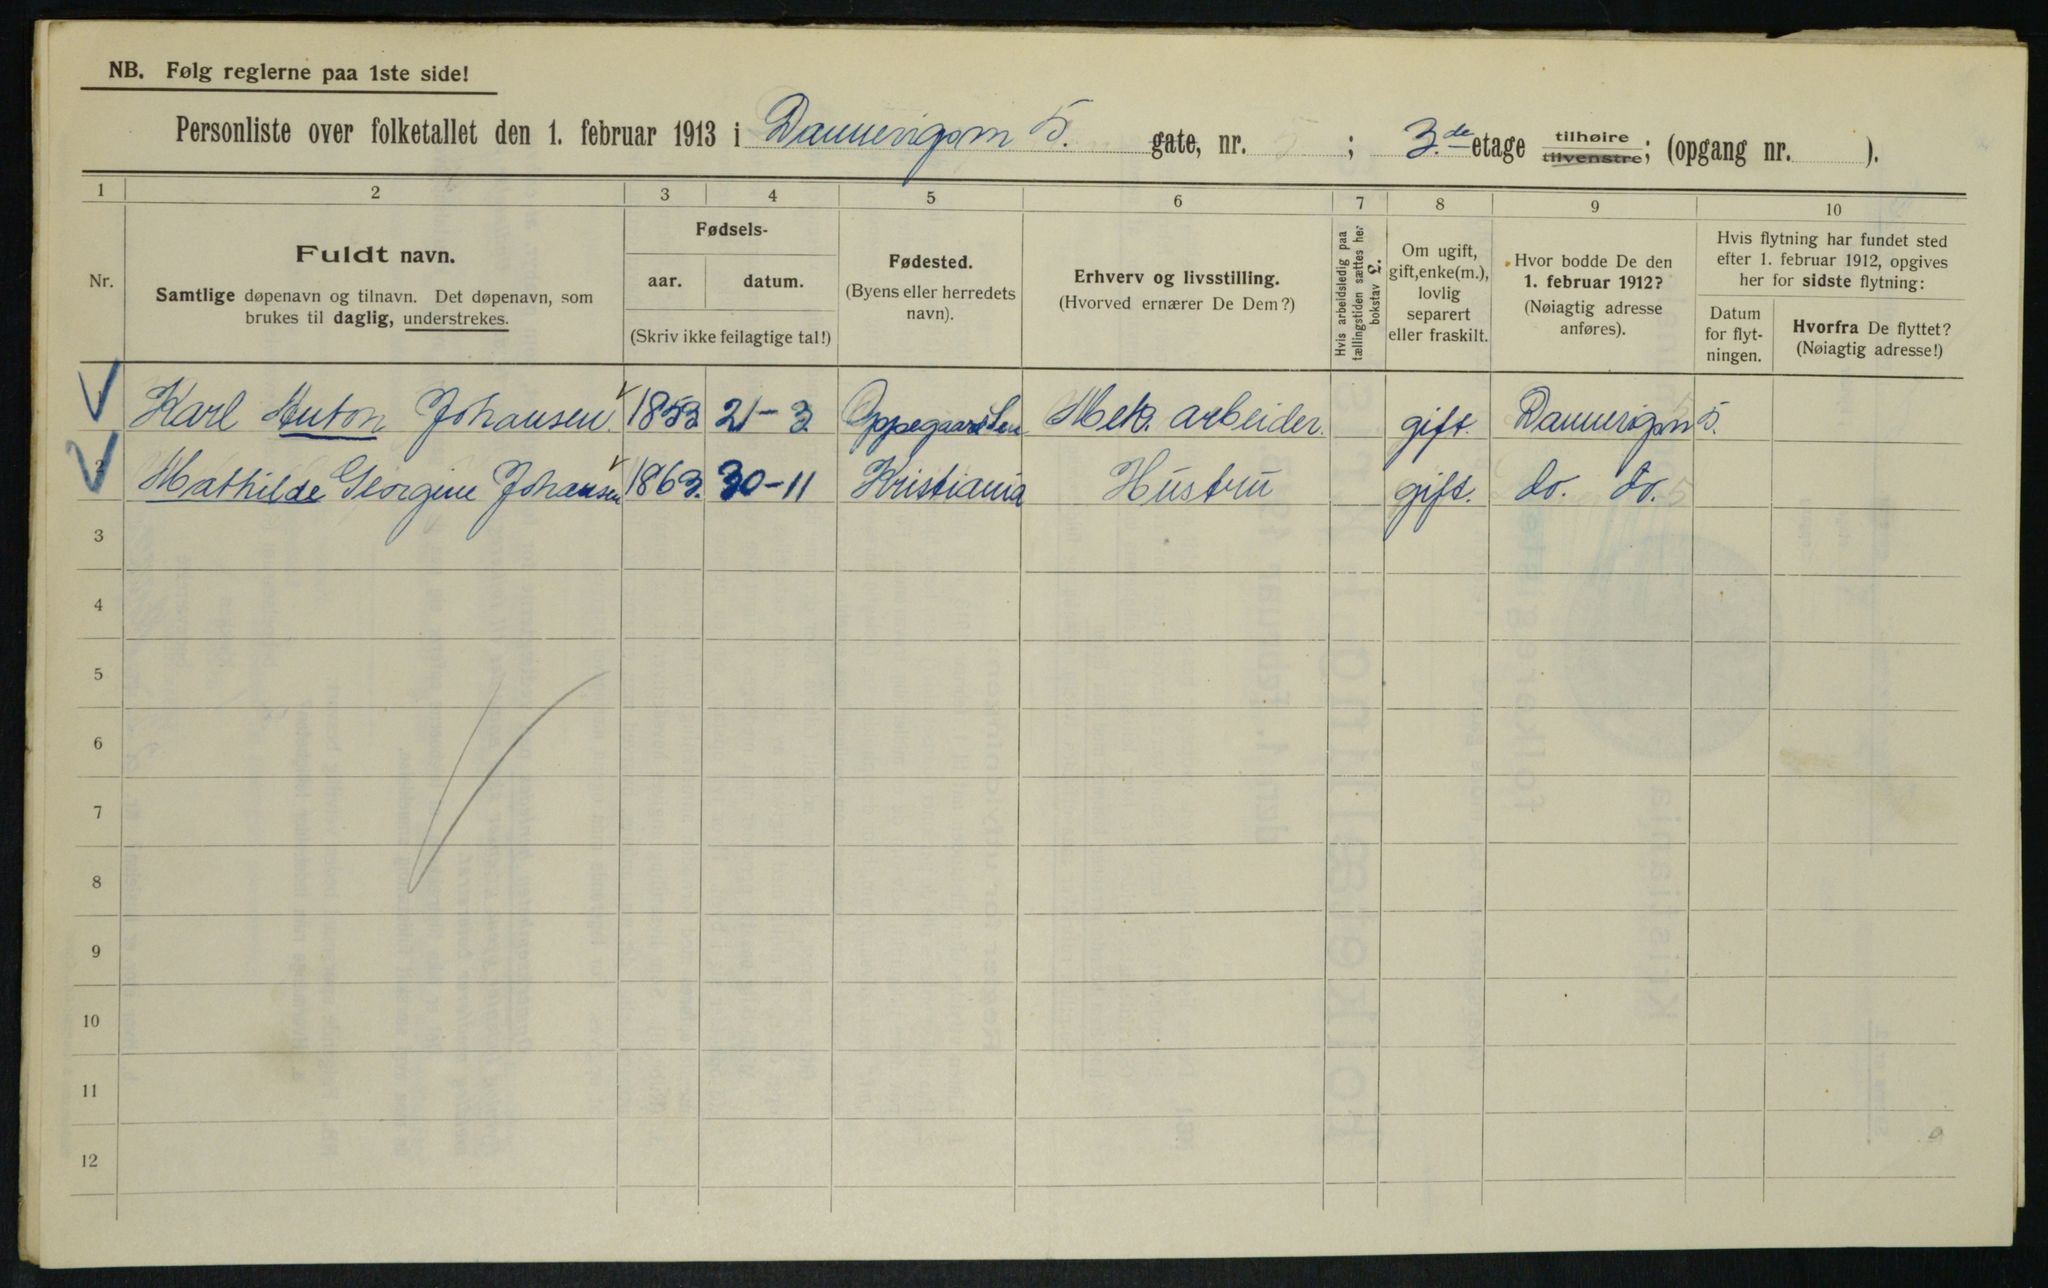 NB. Følg reglerne paa 1ste side!
Personliste over folketallet den 1. februar 1913 i Dannevigsvn 5. gate, nr. 5 ; 3.de etage tilhøire tilvenstre; (opgang nr. ).
1 2 3 4 5 6 7 8 9 10
Nr.
Fuldt navn.
Samtlige døpenavn og tilnavn. Det døpenavn, som
brukes til daglig, understrekes.
Fødsels-
aar. datum.
(Skriv ikke feilagtige tal!)
Fødested.
(Byens eller herredets
navn).
Erhverv og livsstilling.
(Hvorved ernærer De Dem?)
Hvis arbeidsledig paa
tællingstiden sættes her
bokstav L.
Om ugift,
gift, enke(m.),
lovlig
separert
eller fraskilt.
Hvor bodde De den
1. februar 1912?
(Nøiagtig adresse
anføres).
Hvis flytning har fundet sted
efter 1. februar 1912, opgives
her for sidste flytning:
Datum
for flyt-
ningen.
Hvorfra De flyttet?
(Nøiagtig adresse!)
1 Karl Anton Johansen 1853 21-3 Oppegaard Mek. arbeider. gift. Dannevigsvn 5.
2 Mathilde Georgine Johansen 1863. 30-11 Kristiania Hustru gift. do. do. 5
3
4
5
6
7
8
9
10
11
12